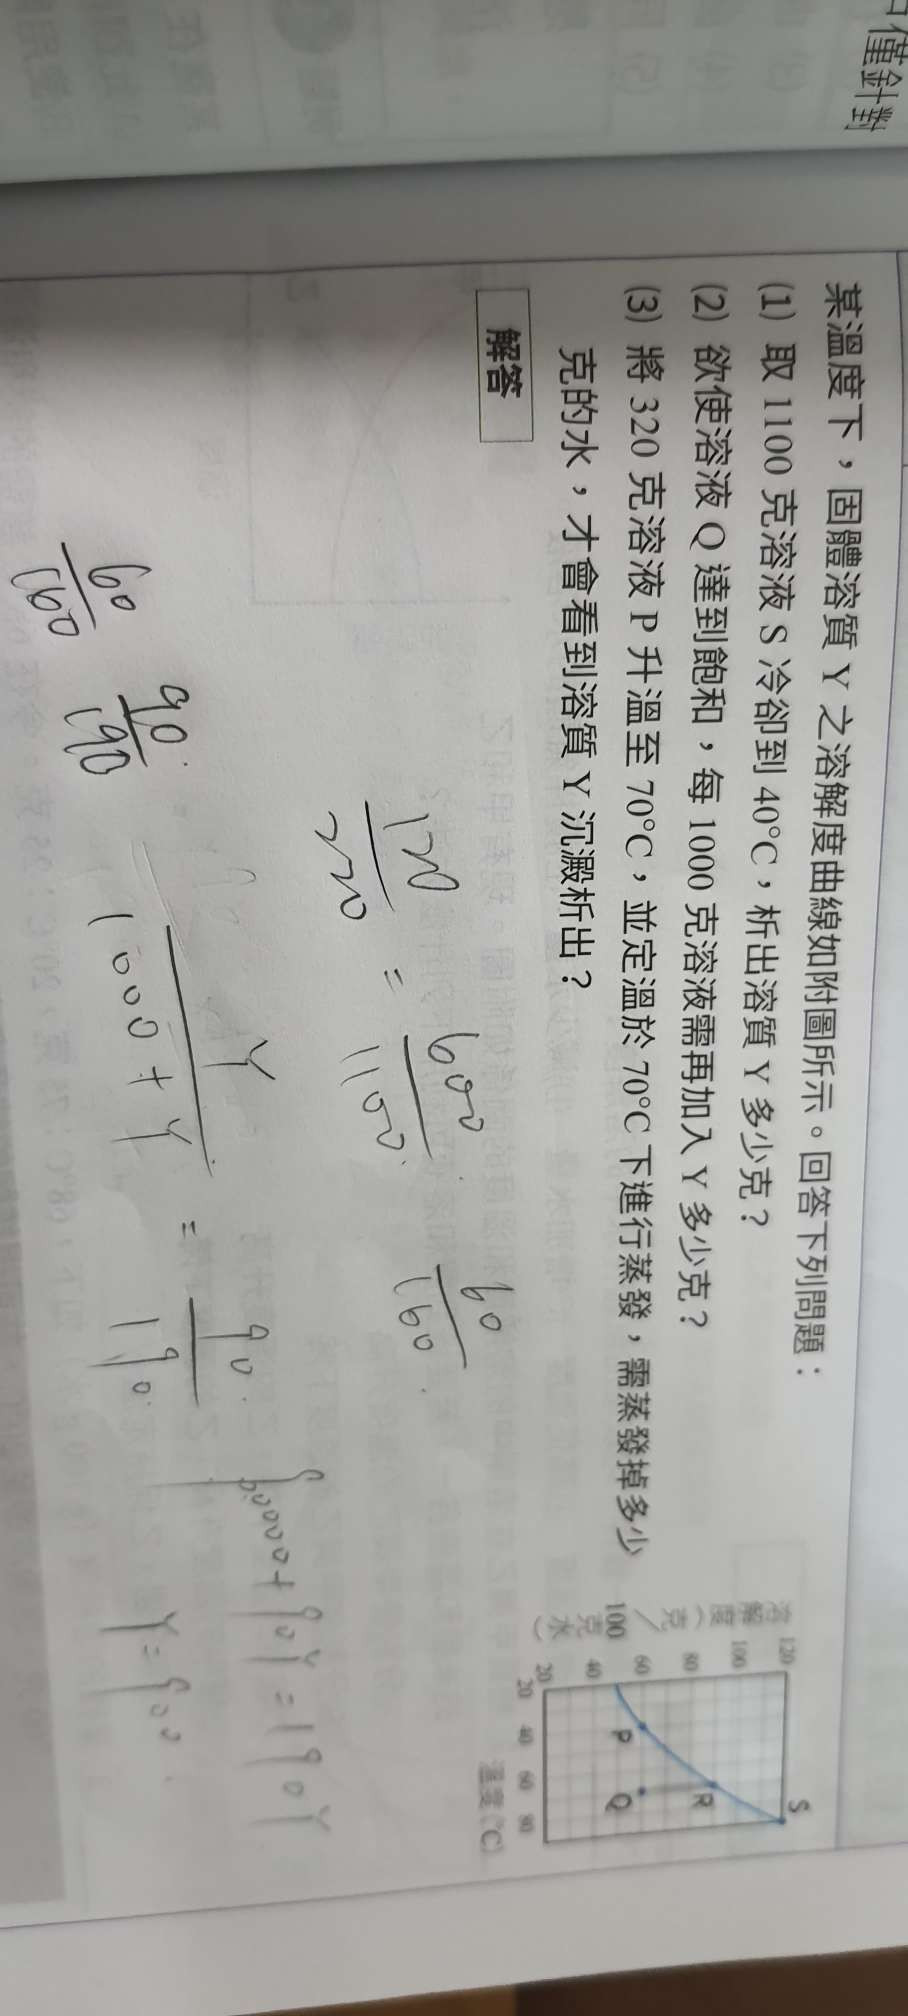 僅針對
某溫度下，固體溶質 Y 之溶解度曲線如附圖所示。回答下列問題：
(1) 取 1100 克溶液 S 冷卻到 40°C，析出溶質 Y 多少克？
(2) 欲使溶液 Q 達到飽和，每 1000 克溶液需再加入 Y 多少克？
(3) 將 320 克溶液 P 升溫至 70°C，並定溫於 70°C 下進行蒸發，需蒸發掉多少
克的水，才會看到溶質 Y 沉澱析出？
溶解度（克／100克水）
120
100
80
60
40
20
S
R
P
Q
20 40 60 80
溫度(°C)
解答
120/220 = 600/1100
60/160
Y/1000+Y = 90/190
90000+90Y=190Y
Y=900
90/190
60/160